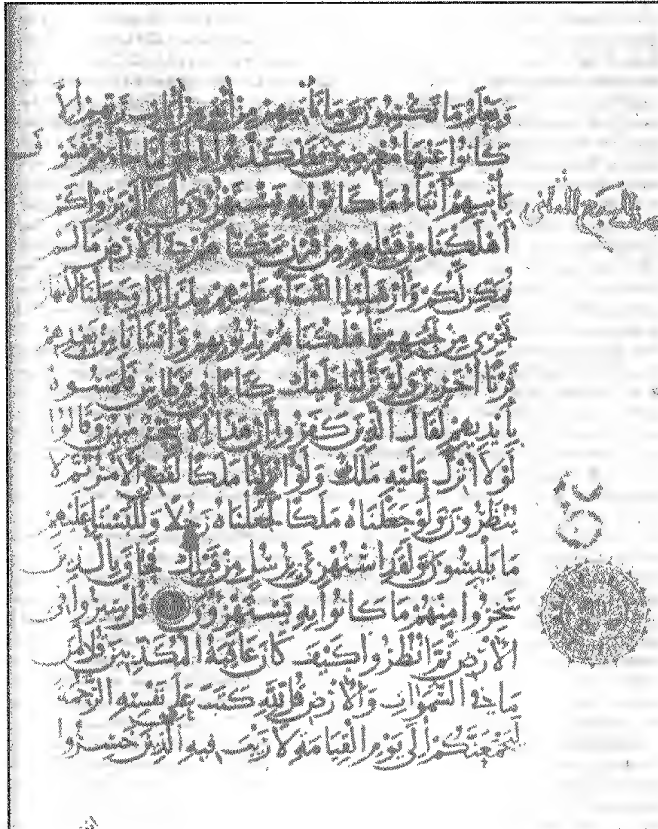 ويعلم ما تكسبون وما تأتيهم من آية من آيات ربهم إلا
كانوا عنها معرضين فقد كذبوا بالحق لما جاءهم فسوف
يأتيهم أنباء ما كانوا به يستهزؤن ألم يروا كم
نصف السبع الثاني
أهلكنا من قبلهم من قرن مكناهم في الأرض ما لم
نمكن لكم وأرسلنا السماء عليهم مدرارا وجعلنا الأنهار
تجري من تحتهم فأهلكناهم بذنوبهم وأنشأنا من بعدهم
قرنا آخرين ولو نزلنا عليك كتابا في قرطاس فلمسوه
بأيديهم لقال الذين كفروا إن هذا إلا سحر مبين وقالوا
لولا أنزل عليه ملك ولو أنزلنا ملكا لقضي الأمر ثم لا
ينظرون ولو جعلناه ملكا لجعلناه رجلا وللبسنا عليهم
ما يلبسون ولقد استهزئ برسل من قبلك فحاق بالذين
سخروا منهم ما كانوا به يستهزؤن قل سيروا في
الأرض ثم انظروا كيف كان عاقبة المكذبين قل لمن
ما في السموات والأرض قل لله كتب على نفسه الرحمة
ليجمعنكم إلى يوم القيامة لا ريب فيه الذين خسروا